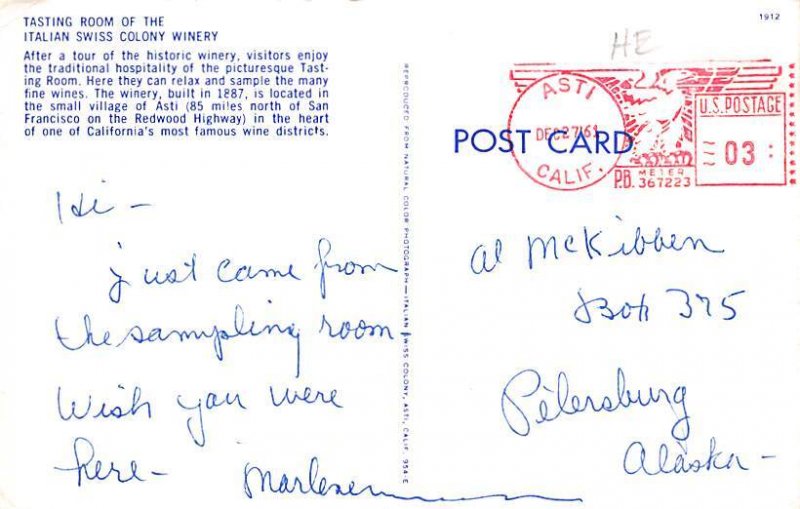 TASTING ROOM OF THE
ITALIAN SWISS COLONY WINERY
After a tour of the historic winery, visitors enjoy
the traditional hospitality of the picturesque Tast-
ing Room. Here they can relax and sample the many
fine wines. The winery, built in 1887, is located in
the small village of Asti (85 miles north of San
Francisco on the Redwood Highway) in the heart
of one of California's most famous wine districts.
Hi -
just came from
the sampling room
Wish you were
here -
Marlene
REPRODUCED FROM NATURAL COLOR PHOTOGRAPH—ITALIAN SWISS COLONY, ASTI, CALIF. 954-E
1912
HE
ASTI
DEC 27 '63
CALIF.
U.S. POSTAGE
03
P.B. METER
367223
POST CARD
Al McKibben
Box 375
Petersburg
Alaska -